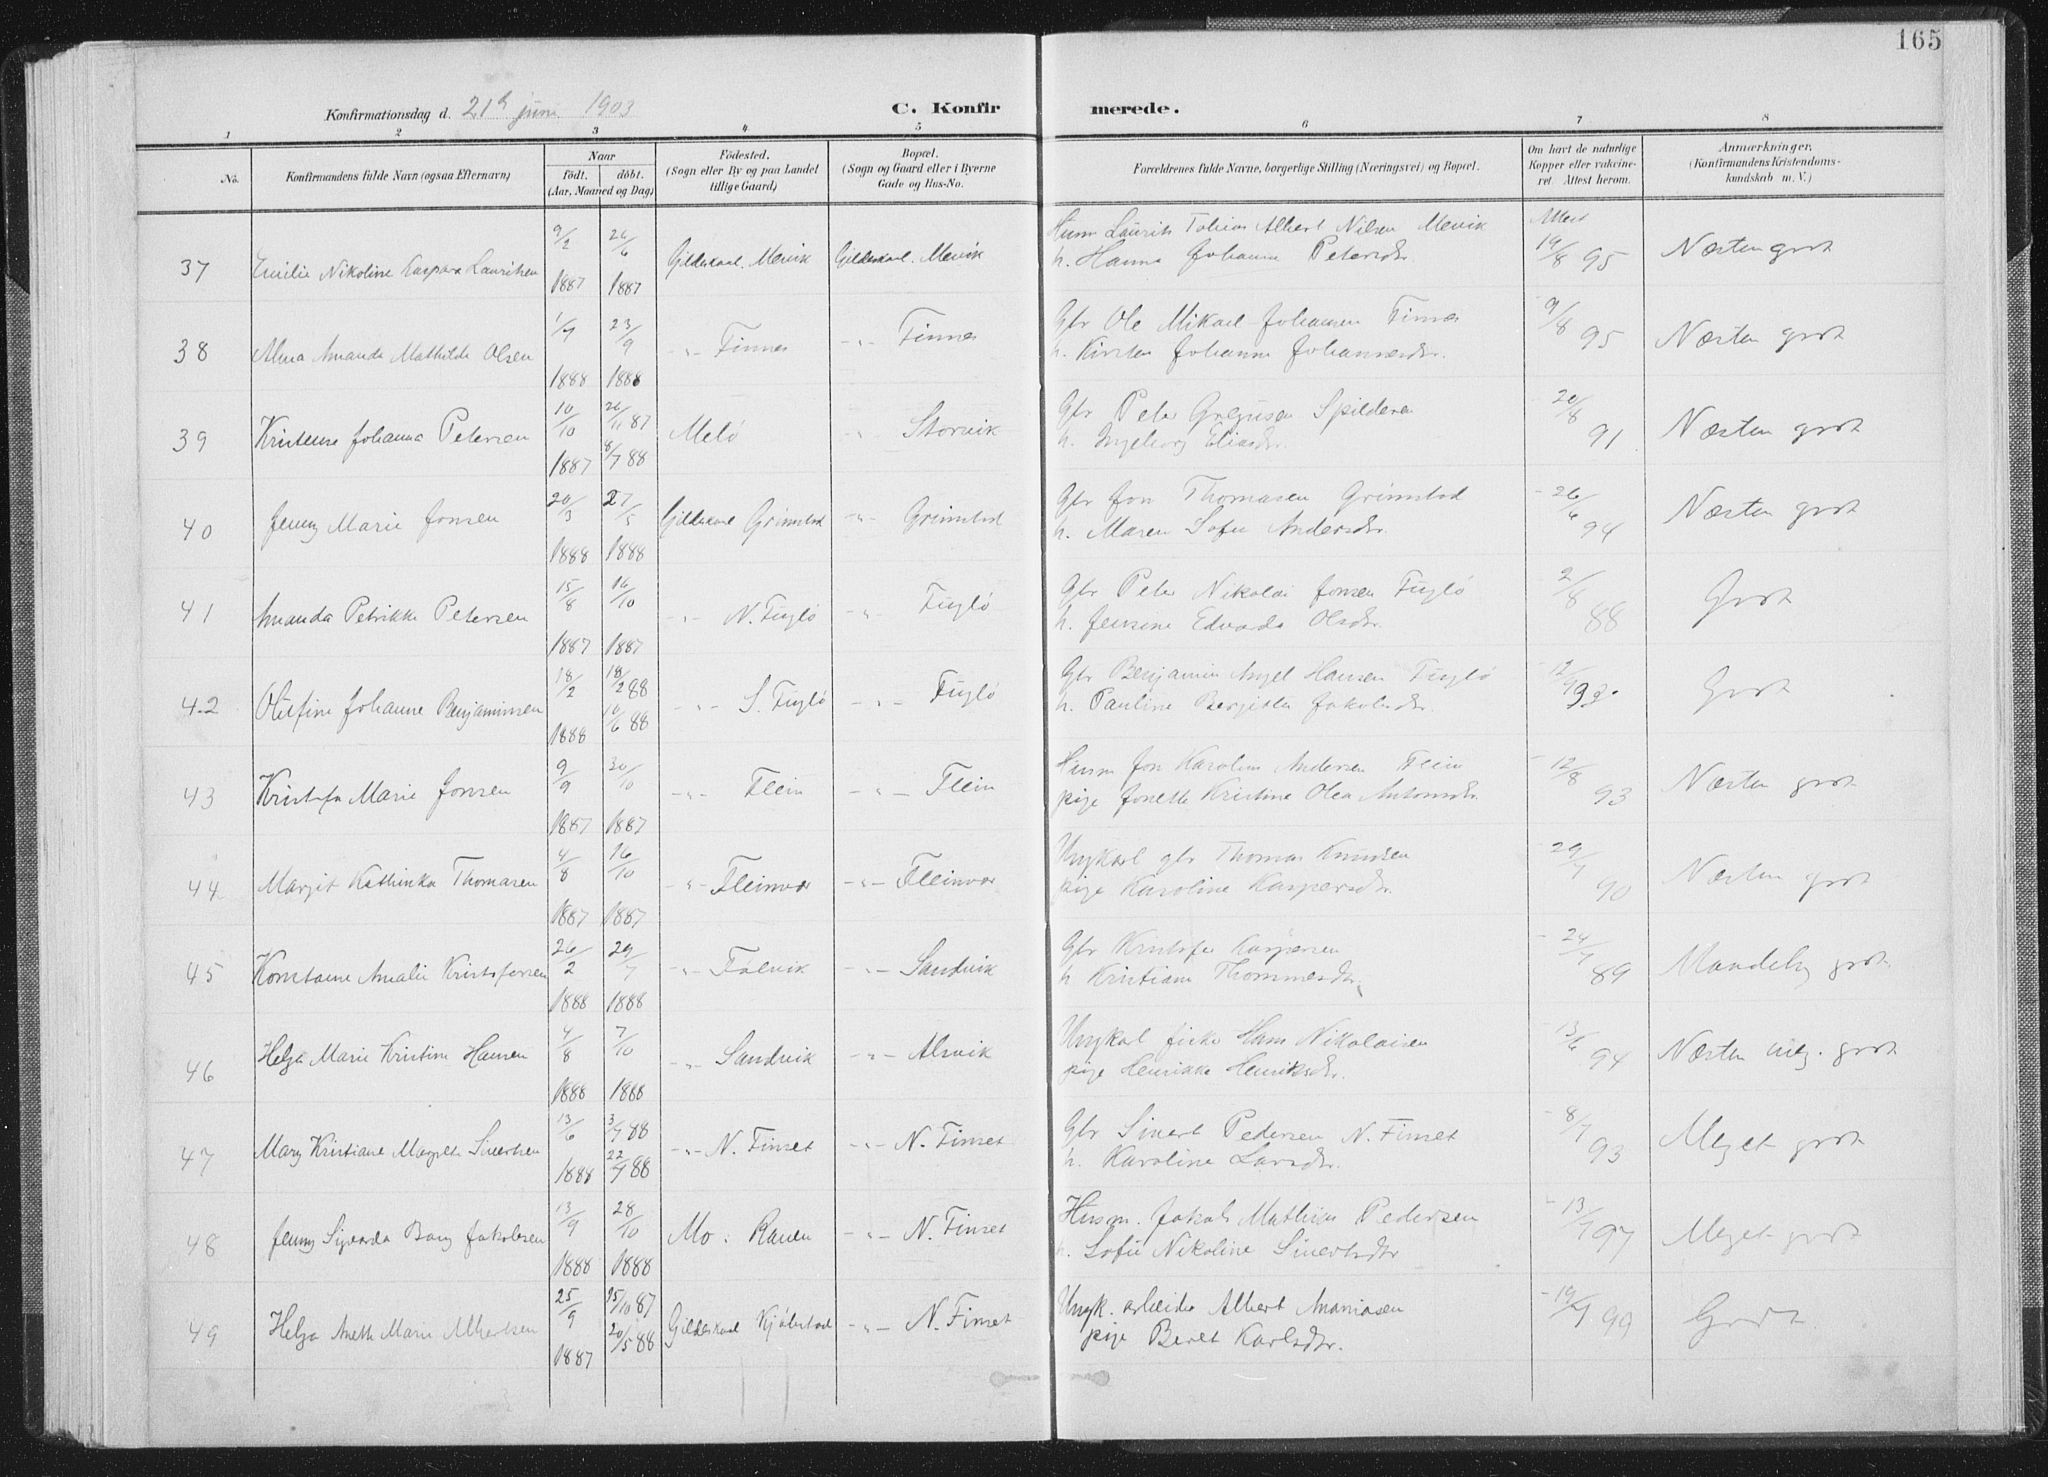 165
Konfirmationsdag d. 21de juni 1903
C. Konfirmerede.
1 2 3 4 5 6 7 8
No.
Konfirmandens fulde Navn (ogsaa Efternavn)
Naar
födt. döbt.
(Aar, Maaned og Dag)
Födested.
(Sogn eller By og paa Landet
tillige Gaard)
Bopæl.
(Sogn og Gaard eller i Byerne
Gade og Hus-No.
Forældrenes fulde Navne, borgerlige Stilling (Næringsvei) og Bopæl.
Om havt de naturlige
Kopper eller vakcine-
ret. Attest herom.
Anmærkninger.
(Konfirmandens Kristendoms-
kundskab m. V.)
37 Emilie Nikoline Kaspara Lauritsen 9/2 1887 26/6 1887 Gildeskaal. Mevik Gildeskaal. Mevik
Husm Laurits Tobias Albert Nilsen Mevik
h. Hanna Johanna Petersdr
Attest 19/8 95 Næsten godt
38 Alma Amanda Mathilde Olsen 1/7 1888 23/9 1888 -"- Finnes -"- Finnes
Gbr Ole Mikael Johansen Finnes
h. Kirsten Johanna Johannesdr.
- 9/8 95 Næsten godt
39 Kristense Johanna Petersen 10/10 1887 26/11 87 8/7 88 Melö " Storvik
Gbr Peter Gregusen Spilderen
h. Ingeborg Eliasdr
- 20/8 91 Næsten godt
40 Jenny Marie Jonsen 20/3 1888 27/5 1888 Gildeskaal Grimstad -"- Grimstad
Gbr Jon Thomasen Grimstad
h. Maren Sofie Andersdr.
- 26/6 94 Næsten godt
41 Amanda Petrikke Petersen 15/8 1887 16/10 1887 -"- N. Fuglö -"- Fuglö
Gbr Peter Nikolai Jonsen Fuglö
h. Jensine Edvarda Olsdr.
- 2/8 88 Godt
42 Olufine Johanne Benjaminsen 18/2 1888 18/2 88 10/6 88 -"- S. Fuglö -"- Fuglö
Gbr Benjamin Angel Hansen Fuglö
h. Pauline Bergitta Jakobsdr.
- 12/9 93. Godt
43 Kristofa Marie Jonsen 9/9 1887 30/10 1887 -"- Flein -"- Flein
Husm Jon Karolius Andersen Flein
pige Jonette Kristine Olea Antonsdr.
- 12/8 93 Næsten godt
44 Margit Kathinka Thomasen 4/8 1887 16/10 1887 -"- Fleinvær -"- Fleinvær
Ungkarl gbr Thomas Knudsen
pige Karoline Kaspersdr.
- 29/7 90 Næsten godt
45 Konstanse Amalie Kristofersen 26/2 1888 29/7 1888 -"- Følvik -"- Sandvik
Gbr Kristofer Kaspersen
h Kristiane Thommesdr.
- 24/7 89 Mandelig godt
46 Helga Marie Kristine Hansen 4/8 1888 7/10 1888 -"- Sandvik -"- Alsvik
Ungkarl fisker Hans Nikolaisen
pige Henrikke Henriksdr.
- 13/6 94 Næsten meg. godt
47 Mary Kristiane Margrete Sivertsen 13/6 1888 3/7 88 22/7 88 -"- N. Finset -"- N. Finset
Gbr Sivert Pedersen N. Finset
h. Karoline Larsdr.
- 8/7 93 Meget godt
48 Jenny Sigvarda Bang Jakobsen 13/9 1888 28/10 1888 Mo i Ranen -"- N. Finset
Husm. Jakob Mathias Pedersen
h. Sofie Nikoline Sivertsdr
- 13/7 97 Meget godt
49 Helga Anette Marie Albertsen 25/9 1887 25/10 87 20/5 88 Gildeskaal Kjöbstad -"- N. Finset
Ungk. arbeider Albert Ananiasen
pige Beret Karlsdr.
- 19/7 99 Godt.